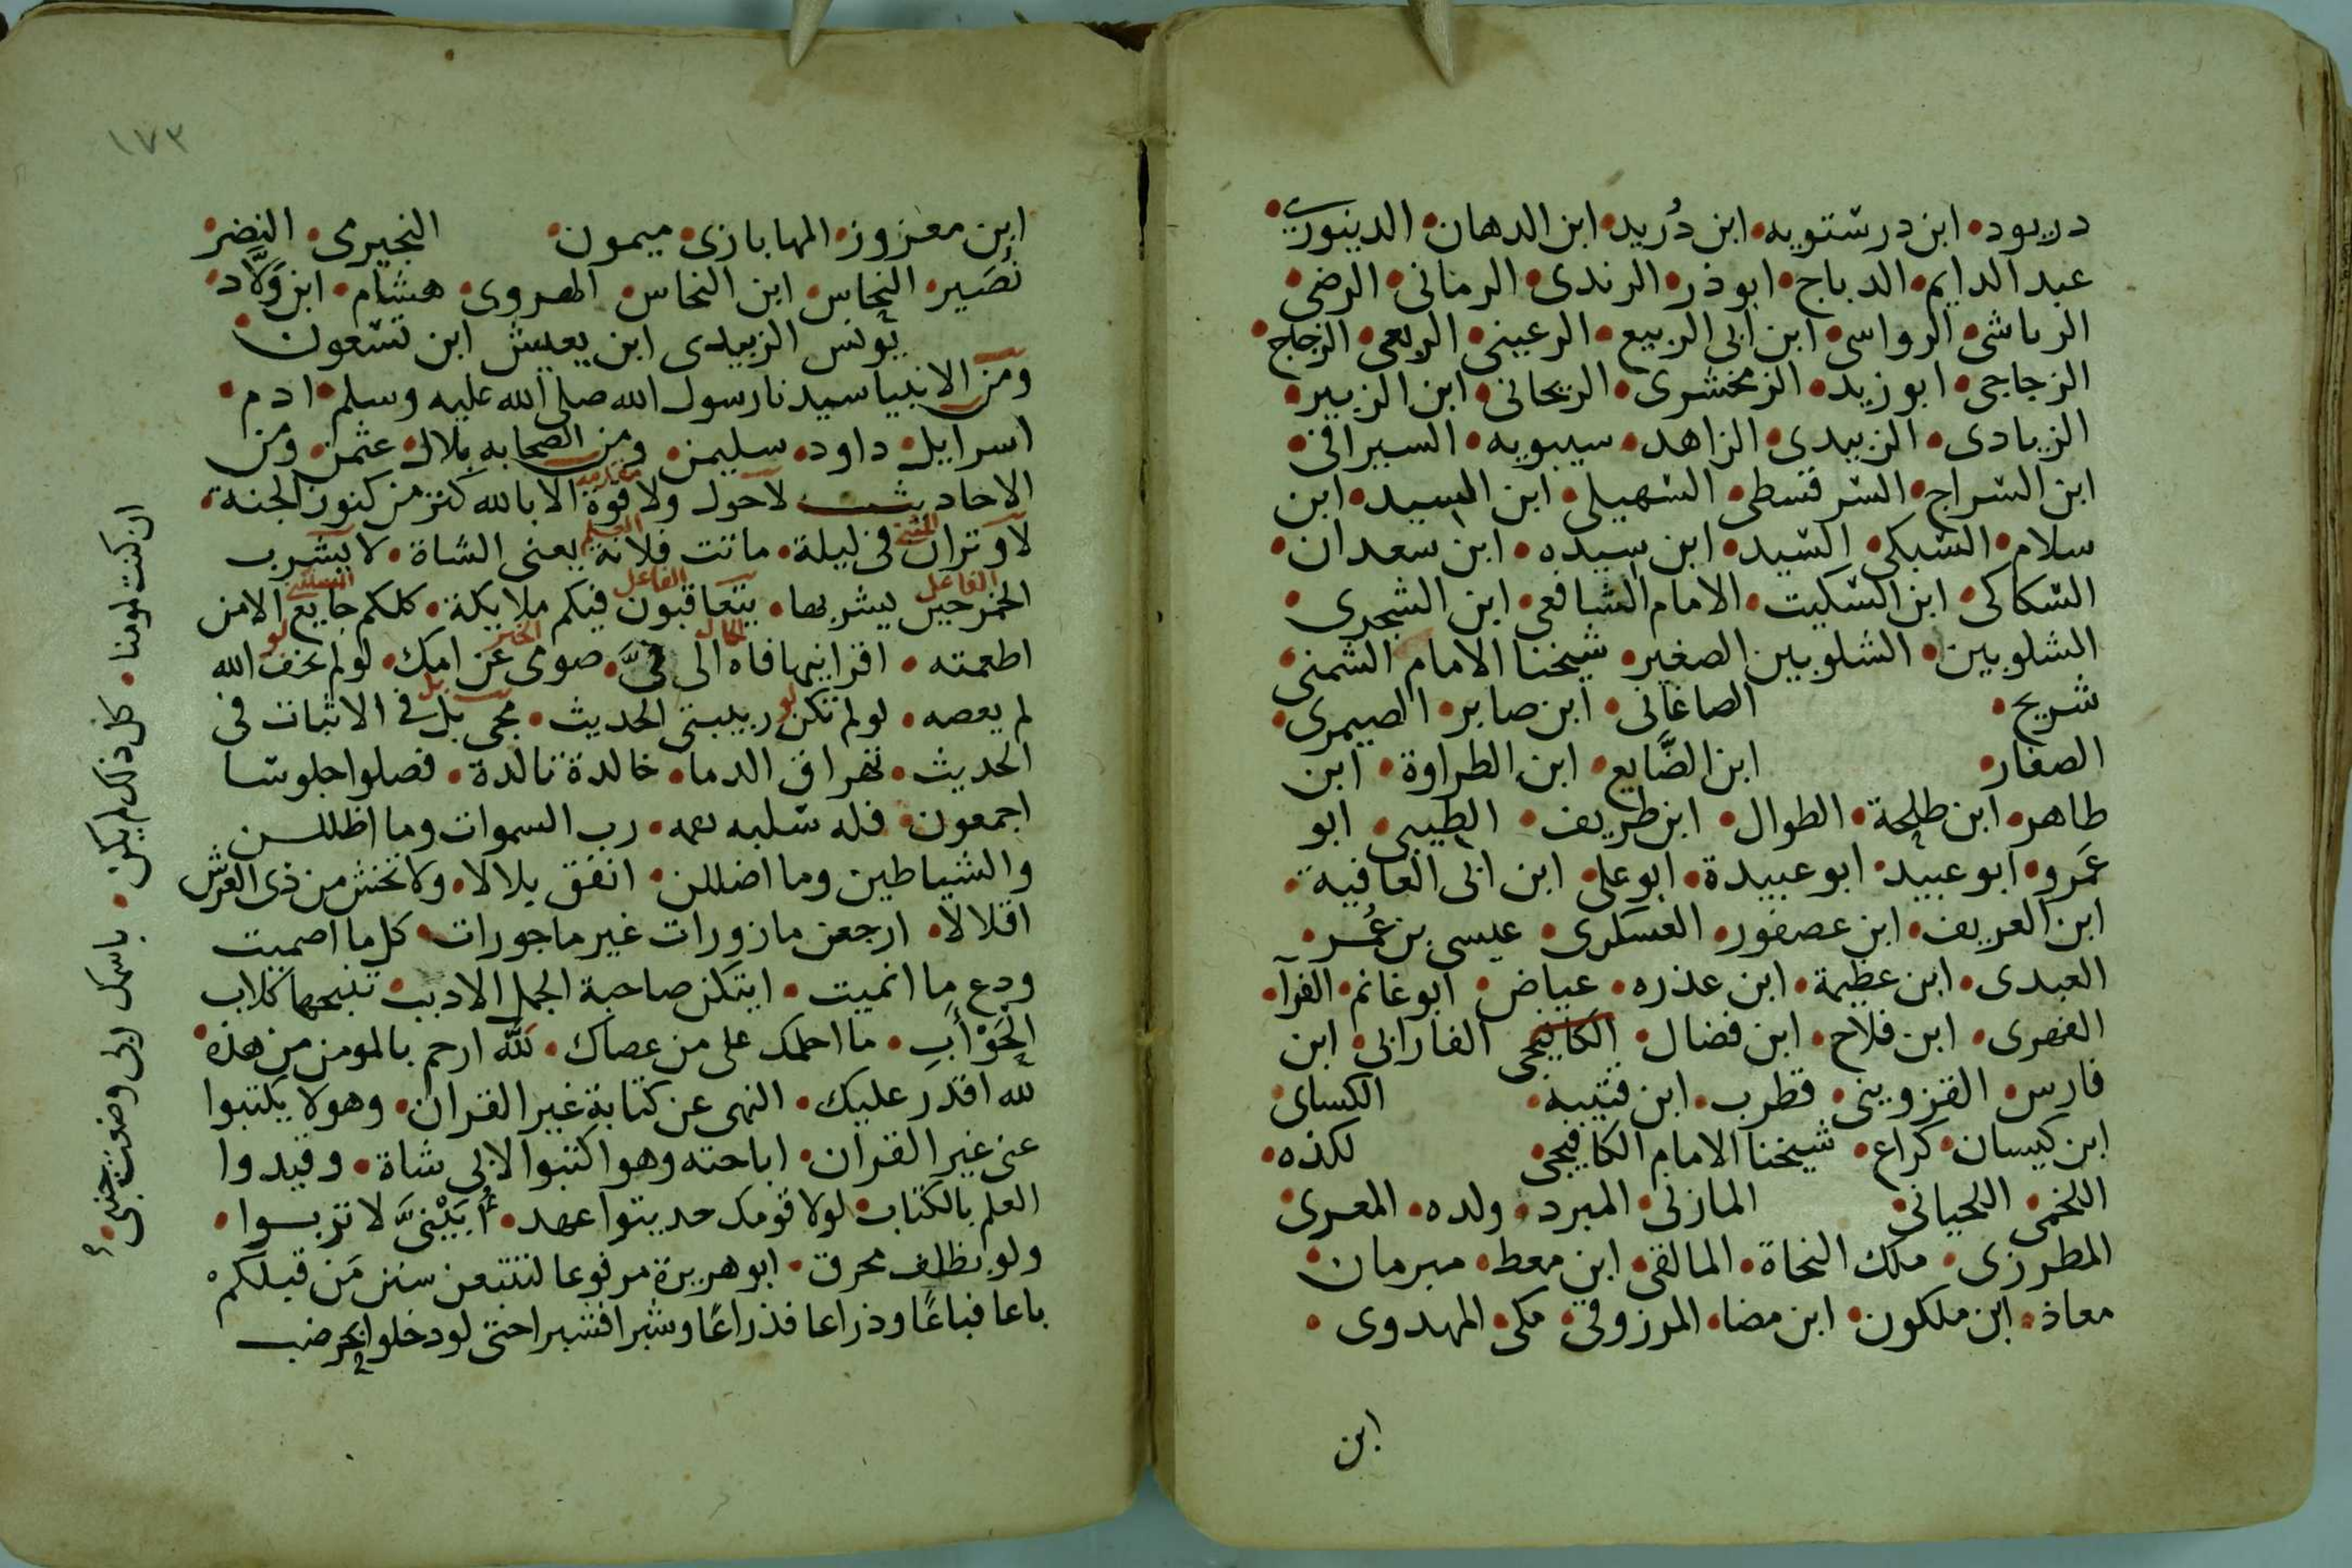 دريود • ابن درستويه • ابن دُريد • ابن الدهان • الدينوري •
عبد الدايم • الدباج • ابو ذر • الرندى • الرمانى • الرضى •
الرياشى • الرواسى • ابن ابى الربيع • الرعينى • الربعى • الزجاج •
الزجاجى • ابو زيد • الزمخشرى • الريحانى • ابن الزبير •
الزيادى • الزبيدى • الزاهد • سيبويه • السيرافى •
ابن السراج • السرقسطى • السهيلى • ابن السيد • ابن
سلام • السبكى • السيد • ابن سيده • ابن سعدان •
السكاكى • ابن السكيت • الامام الشافعى • ابن الشجرى •
الشلوبين • الشلوبين الصغير • شيخنا الامام الشمنى •
شريح • الصاغانى • ابن صابر • الصيمرى •
الصفار • ابن الضَّايع • ابن الطراوة • ابن
طاهر • ابن طلحة • الطوال • ابن طريف • الطيبى • ابو
عَمرو • ابو عبيد • ابو عبيدة • ابو على • ابن ابى العافية •
ابن العريف • ابن عصفور • العسكرى • عيسى بن عُمر •
العبدى • ابن عظيمة • ابن عذره • عياض • ابو غانم • الفرآ •
الفهرى • ابن فلاح • ابن فضال • الكافيجى الفارابى • ابن
فارس • القزوينى • قطرب • ابن قتيبة • الكساى •
ابن كيسان • كراع • شيخنا الامام الكافيجى • لكذه •
اللخمى • اللحيانى • المازنى • المبرد • ولده • المعرى •
المطرزى • ملك النحاة • المالقى • ابن معط • مبرمان •
معاذ • ابن ملكون • ابن مضا • المرزوقى • مكى • المهدوى •
ابن
١٧٣
ابن معزوز • المهاباذى • ميمون • النجيرمى • النضر •
نُصَير • النحاس • ابن النحاس • الهروى • هشام • ابن وَلَّاد •
يونس الزبيدى ابن يعيش ابن يسعون •
ومن الانبيا سيدنا رسول الله صلى الله عليه وسلم • ادم •
اسرايل • داود • سليمن • ومن الصحابه بلال • عثمن • ومن
الاحاديث لا حول ولا قوة الا بالله كنز من كنوز الجنة •
لا وتران فى ليلة • ماتت فلانة يعنى الشاة • لا يشرب
الخمر حين يشربها • يتعاقبون فيكم ملايكة • كلكم جايع الا من
اطعمته • اقرانيها فاه الى فىَّ • صومى عن امك • لو لم يخف الله
لم يعصه • لو لم تكن ربيبتى الحديث • مجى بل فى الاثبات فى
الحديث • تهراق الدما • خالدة تالدة • فصلوا جلوسا
اجمعون • فله سلبه • رب السموات وما اظللن
والشياطين وما اضللن • انفق بلالا • ولا تخش من ذى العرش
اقلالا • ارجعن مازورات غير ماجورات • كل ما اصميت
ودع ما انميت • ايتكن صاحبة الجمل الادبب • تنبحها كلاب
الحَوْأَبِ • ما احلمك على من عصاك • لَلّٰه ارحم بالمومن من هذه
لله اقدر عليك • النهى عن كتابة غير القران • وهو لا يكتبوا
عنى غير القران • اباحته وهو اكتبوا لابى شاة • وقيدوا
العلم بالكتاب • لولا قومك حديثوا عهد • أُبَيْنِىَّ لا ترموا •
ولو بظلف محرق • ابو هريرة مرفوعا لتتبعن سنن مَن قبلكم
باعا فباعًا وذراعا فذراعًا وشبرا فشبرا حتى لو دخلوا جحر ضب
الفاعل
الفاعل
الحال
الخبر
لو
لو
بل
ان كنت لمومنا • كل ذلك لم يكن • باسمك ربى وضعت جنبى •